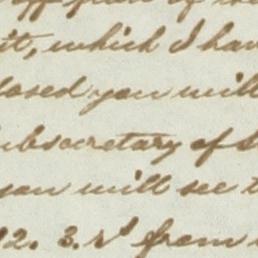 it, which I hav
losed you will
ubsecretary of S
you will see t
12. 3. rd from